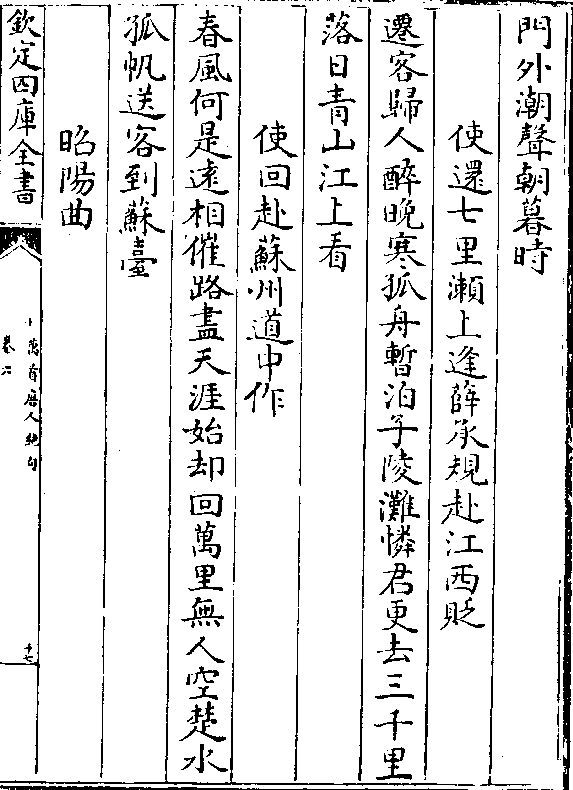 門外潮聲朝暮時
使還七里瀬上逢薛承規赴江西貶
遷客歸人醉晚寒孤舟暫泊子陵灘憐君更去三千里
落日青山江上看
使回赴蘇州道中作
春風何是遠相催路盡天涯始却回萬里無人空楚水
孤帆送客到蘇臺
昭陽曲
欽定四庫全書
萬首唐人絶句
卷六
十七